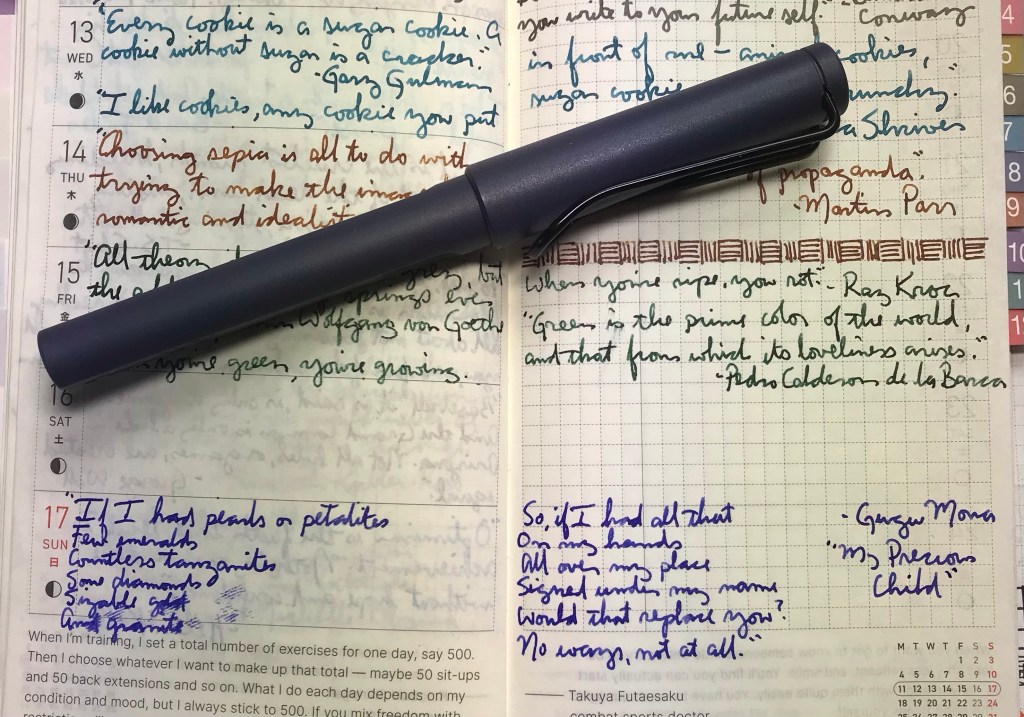 13
WED
水
"Every cookie is a sugar cookie. A
cookie without sugar is a cracker."
- Gary Gulman
"I like cookies, any cookie you put
14
THU
木
"Choosing sepia is all to do with
trying to make the
romantic and
15
FRI
金
"All theory
grey, but
the
springs ever
Wolfgang von Goethe
you're green, you're growing.
16
SAT
土
17
SUN
日
"If I had pearls or petalites
Few emeralds
Countless tanzanites
Some diamonds
Sizable
And granite
When I'm training, I set a total number of exercises for one day, say 500.
Then I choose whatever I want to make up that total — maybe 50 sit-ups
and 50 back extensions and so on. What I do each day depends on my
condition and mood, but I always stick to 500. If you mix freedom with
you write to your future self." - Conway
in front of me -
cookies,
sugar cookie
Shrives
of propaganda."
- Martin Parr
When you're ripe, you rot." - Ray Kroc
"Green is the prime color of the world,
and that from which its loveliness arises."
- Pedro Calderon de la Barca
So, if I had all that
On my hands
All over my place
Signed under my name
Would that replace you?
No ways, not at all."
"My Precious
Child"
— Takuya Futaesaku
combat sports doctor
M T W T F S S
1 2 3
4 5 6 7 8 9 10
11 12 13 14 15 16 17
18 19 20 21 22 23 24
4
5
6
7
8
9
10